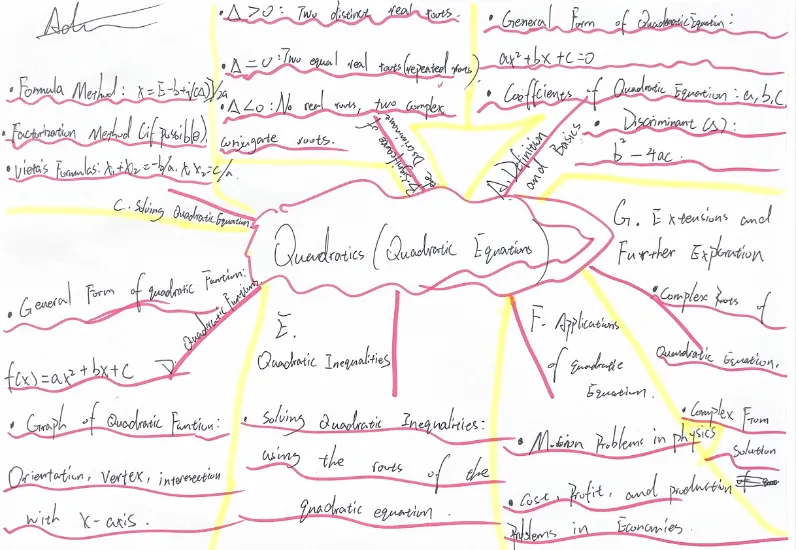 • Δ>0: Two distinct real roots.
• Δ=0: Two equal real roots (repeated roots).
• Δ<0: No real roots, two complex
conjugate roots.
B. Significance of
the Discriminant
• General Form of Quadratic Equation:
ax²+bx+c=0
• Coefficients of Quadratic Equation: a,b,c
• Discriminant (Δ):
b²-4ac.
A. Definition
and Basics
• Formula Method: x=[-b±√(Δ)]/2a
• Factorization Method (if possible).
• Vieta's Formulas: x₁+x₂=-b/a, x₁x₂=c/a.
C. Solving Quadratic Equation
Quadratics (Quadratic Equations)
G. Extensions and
Further Exploration
• Complex Roots of
Quadratic Equation.
• Complex From
Solution
• General Form of quadratic Funtion:
f(x)=ax²+bx+c
D.
Quadratic Funtion
• Graph of Quadratic Funtion:
Orientation, vertex, intersection
with x-axis.
E.
Quadratic Inequalities
• Solving Quadratic Inequalities:
using the roots of the
quadratic equation.
F. Applications
of quadratic
Equation.
• Motion Problems in physics
• Cost, Profit, and production
Problems in Economies.